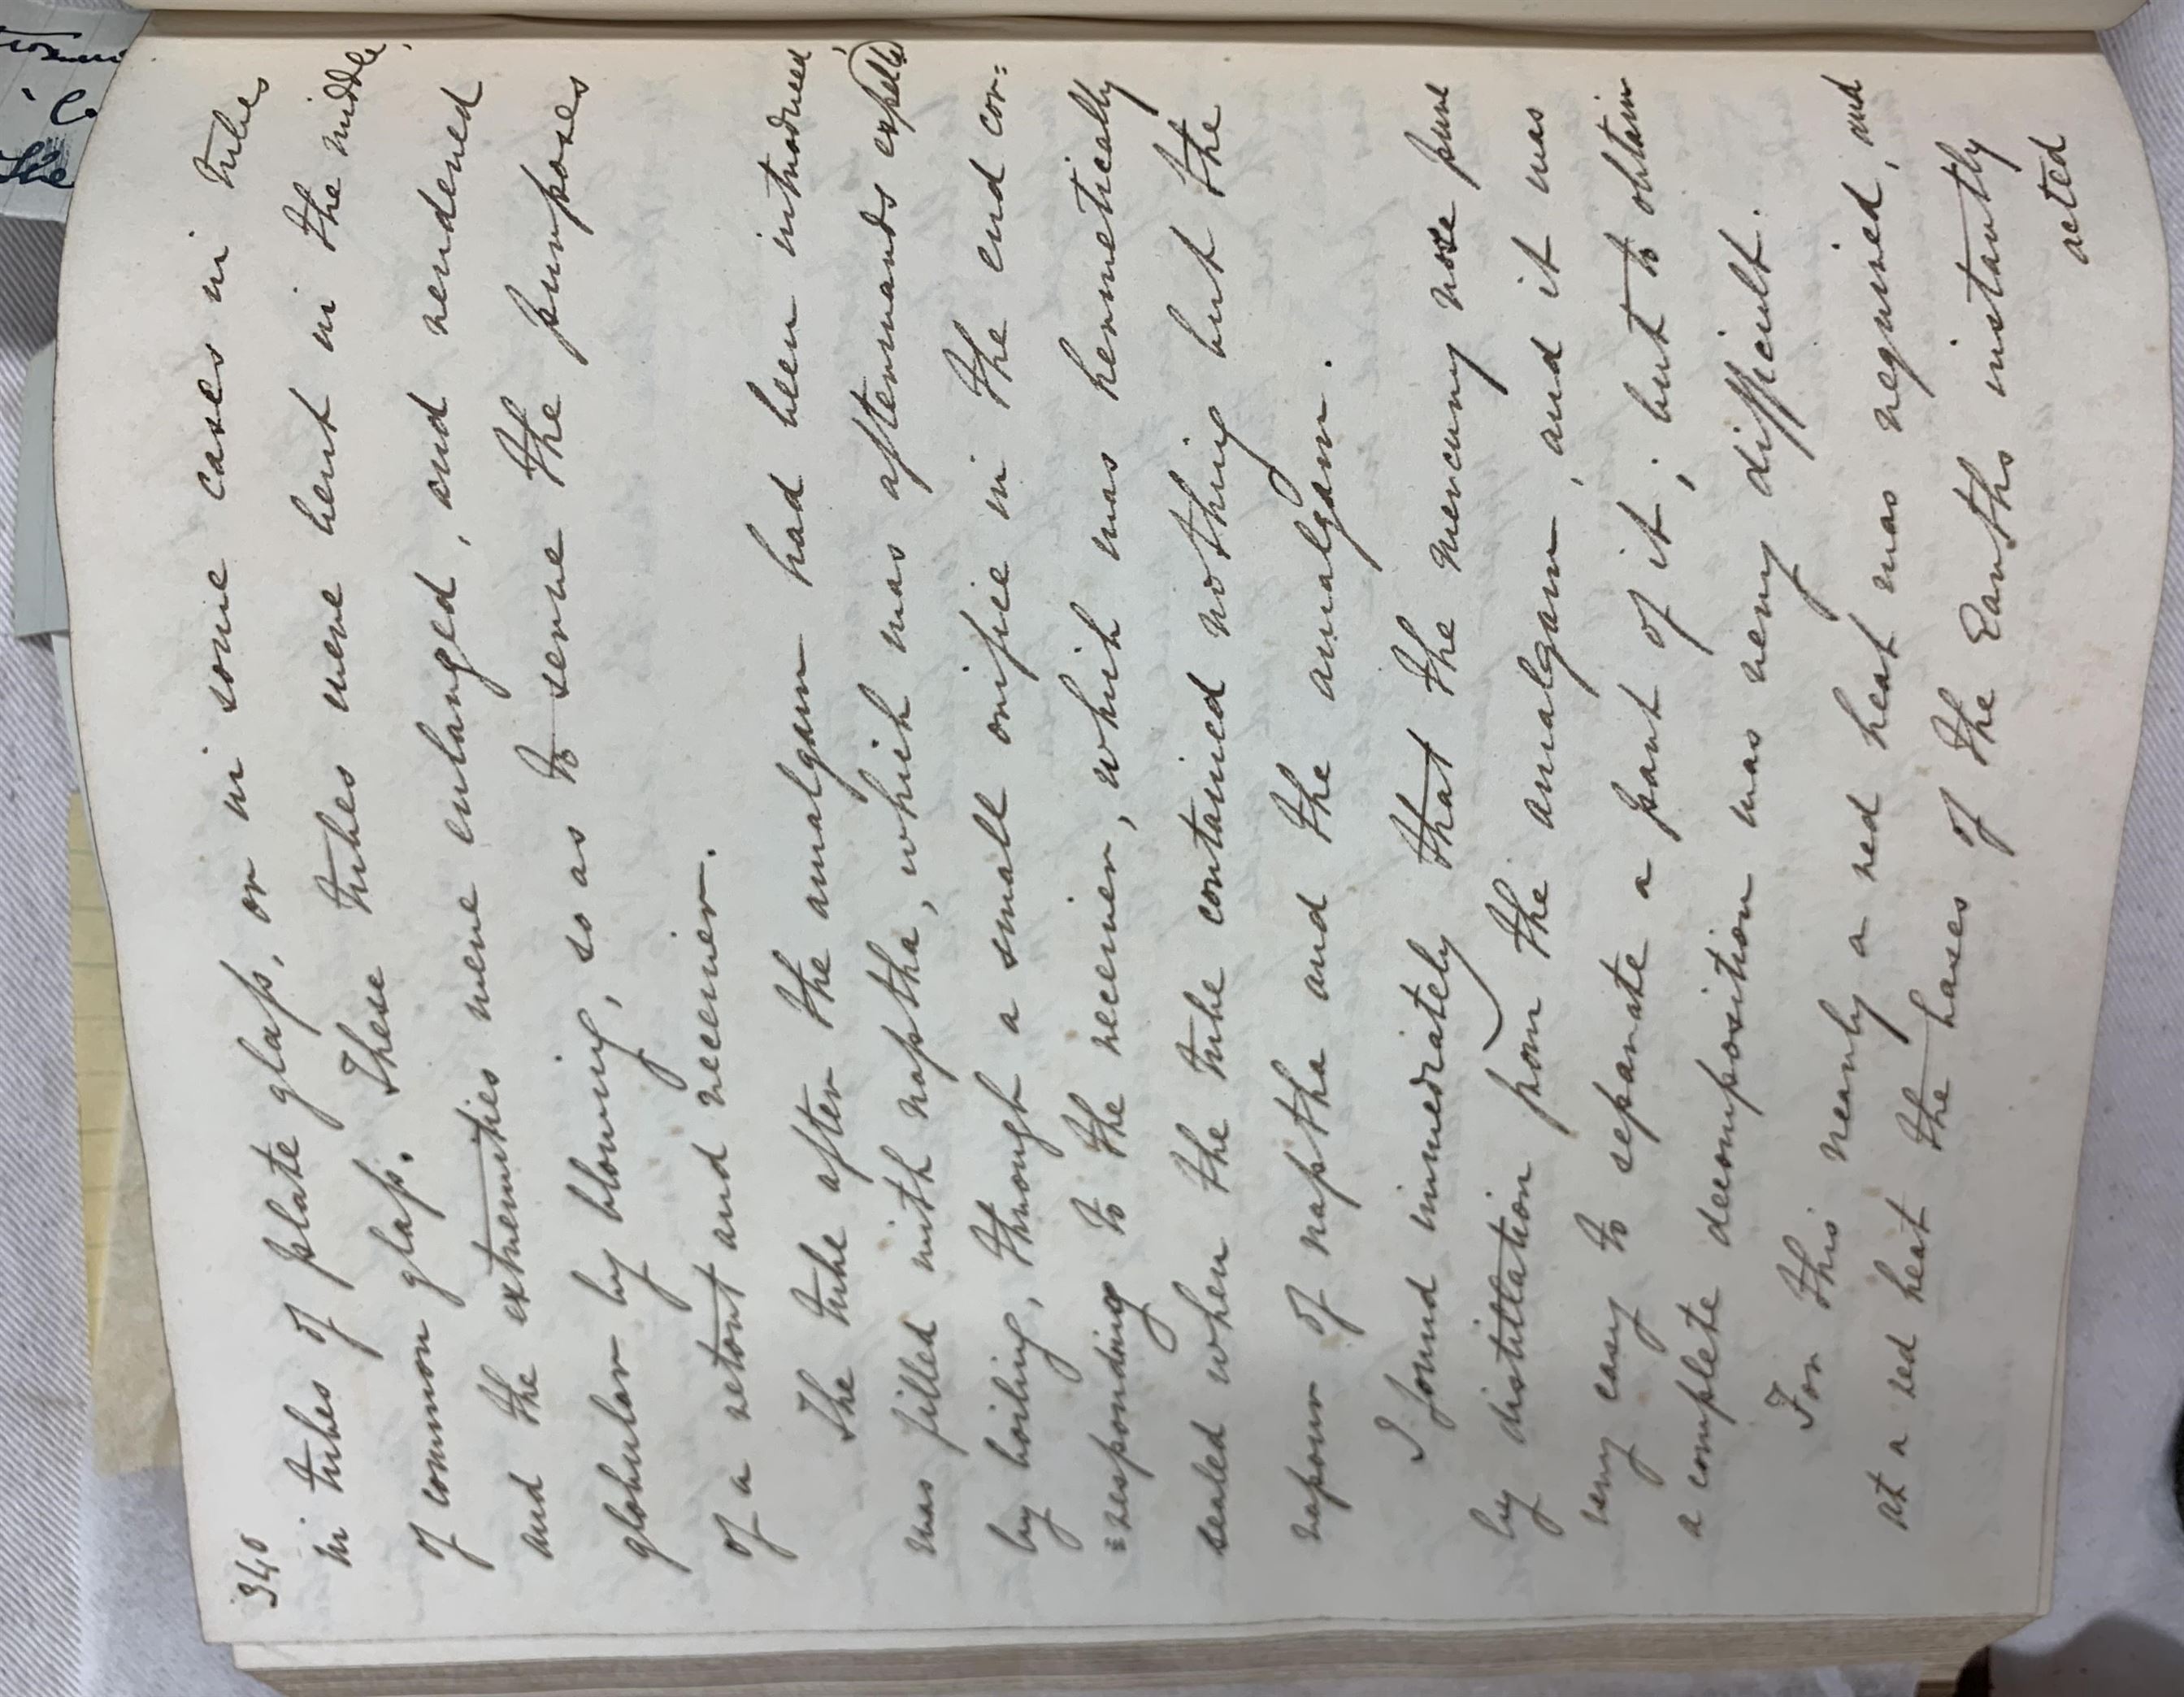 340
in tubes of plate glaſs, or in some cases in tubes
of common glaſs. These tubes were bent in the middle,
and the extremities were enlarged, and rendered
globular by blowing, so as to serve the purposes
of a retort and receiver.
The tube after the amalgam had been introduced,
was filled with naptha, which was afterwards expelled
by boiling, through a small orifice in the end cor=
=responding to the receiver, which was hermetically
sealed when the tube contained nothing but the
vapour of naptha and the amalgam.
I found immediately that the mercury rose pure
by distillation from the amalgam, and it was
very easy to separate a part of it; but to obtain
a complete decomposition was very difficult.
For this nearly a red heat was required, and
at a red heat the bases of the Earths instantly
acted